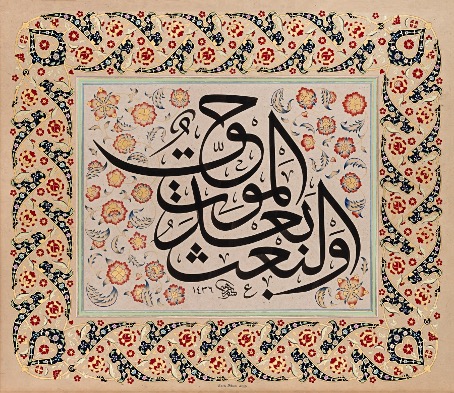 والبعث بعد الموت حق
١٤٣٦